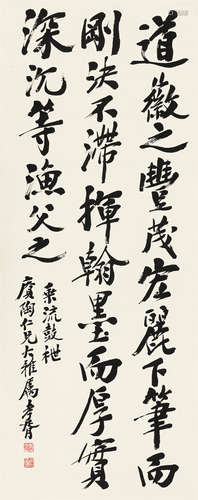 道徽之豐茂宏麗下筆而
剛決不滞揮翰墨而厚實
深沉等漁父之
乘流鼓枻
虞陶仁兄大雅屬 孝胥